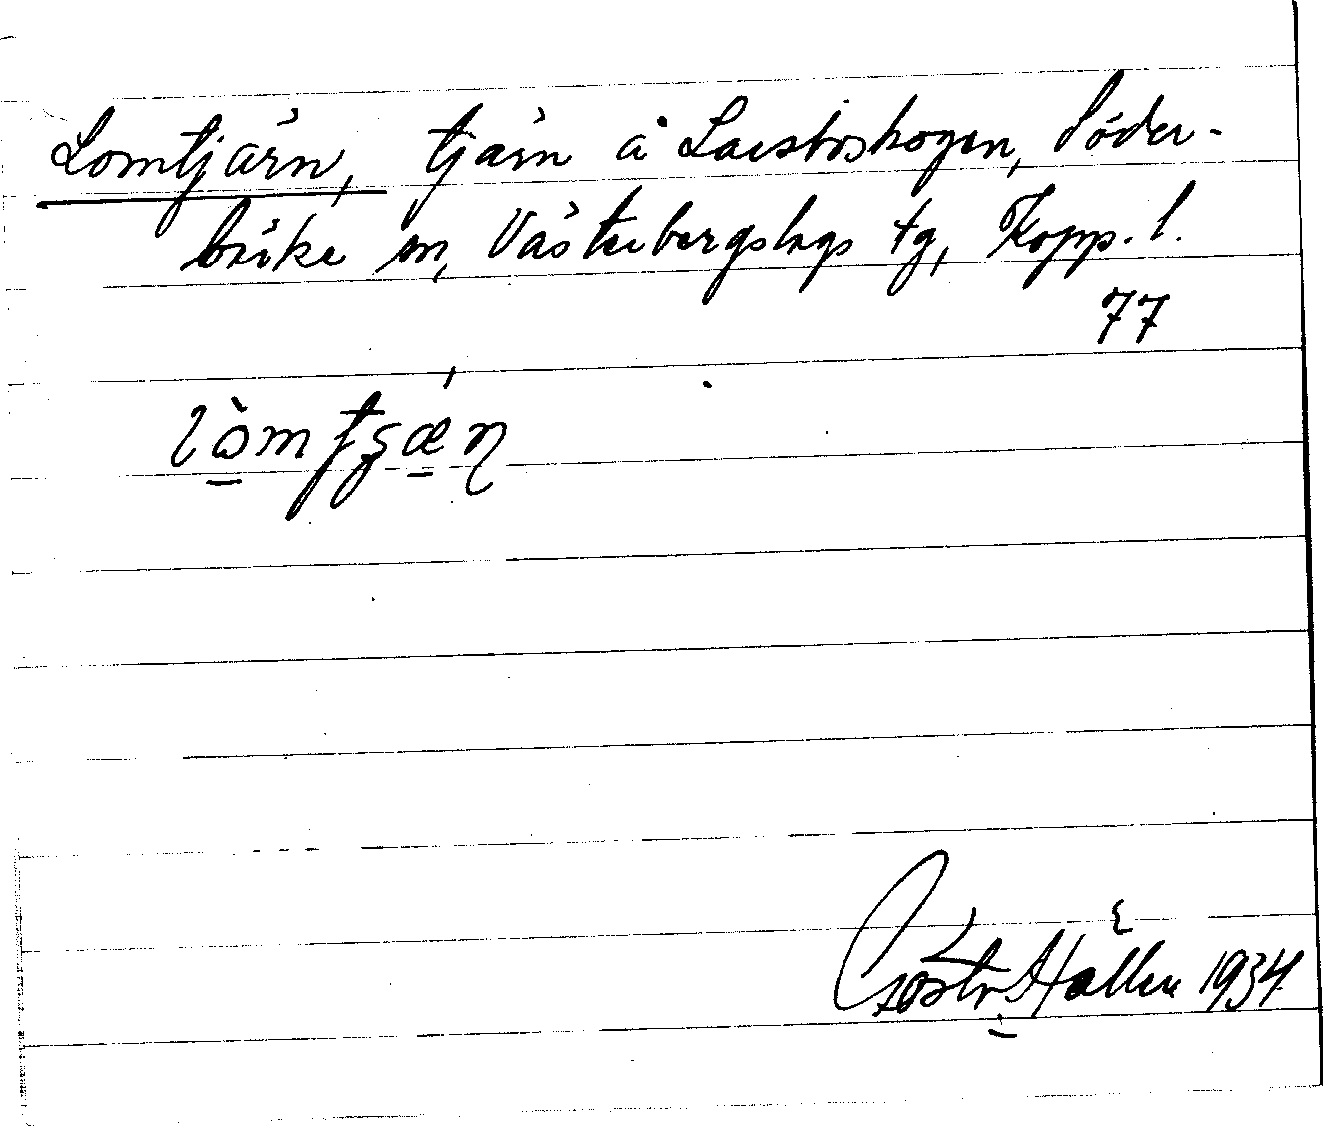 Lomtjärn, tjärn å Larsboskogen, Söder-
bärke sn, Västerbergslags tg, Kopp. l.
77
Gösta Hallén 1934